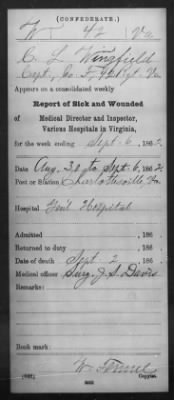 (CONFEDERATE.)
W 42 Va
C. L. Wingfield
Capt., Co. F, 42 Rgt. Va
Appears on a consolidated weekly
Report of Sick and Wounded
of
Medical Director and Inspector,
Various Hospitals in Virginia,
for the week ending Sept. 6, 1862.
Date Aug. 30 to Sept. 6, 1862
Post or Station Charlottesville, Va.
Hospital Gen'l Hospital
Admitted , 186 .
Returned to duty , 186 .
Date of death Sept. 2 , 186 .
Medical officer Surg. J. S. Davis
Remarks:
Book mark:
Copyist.